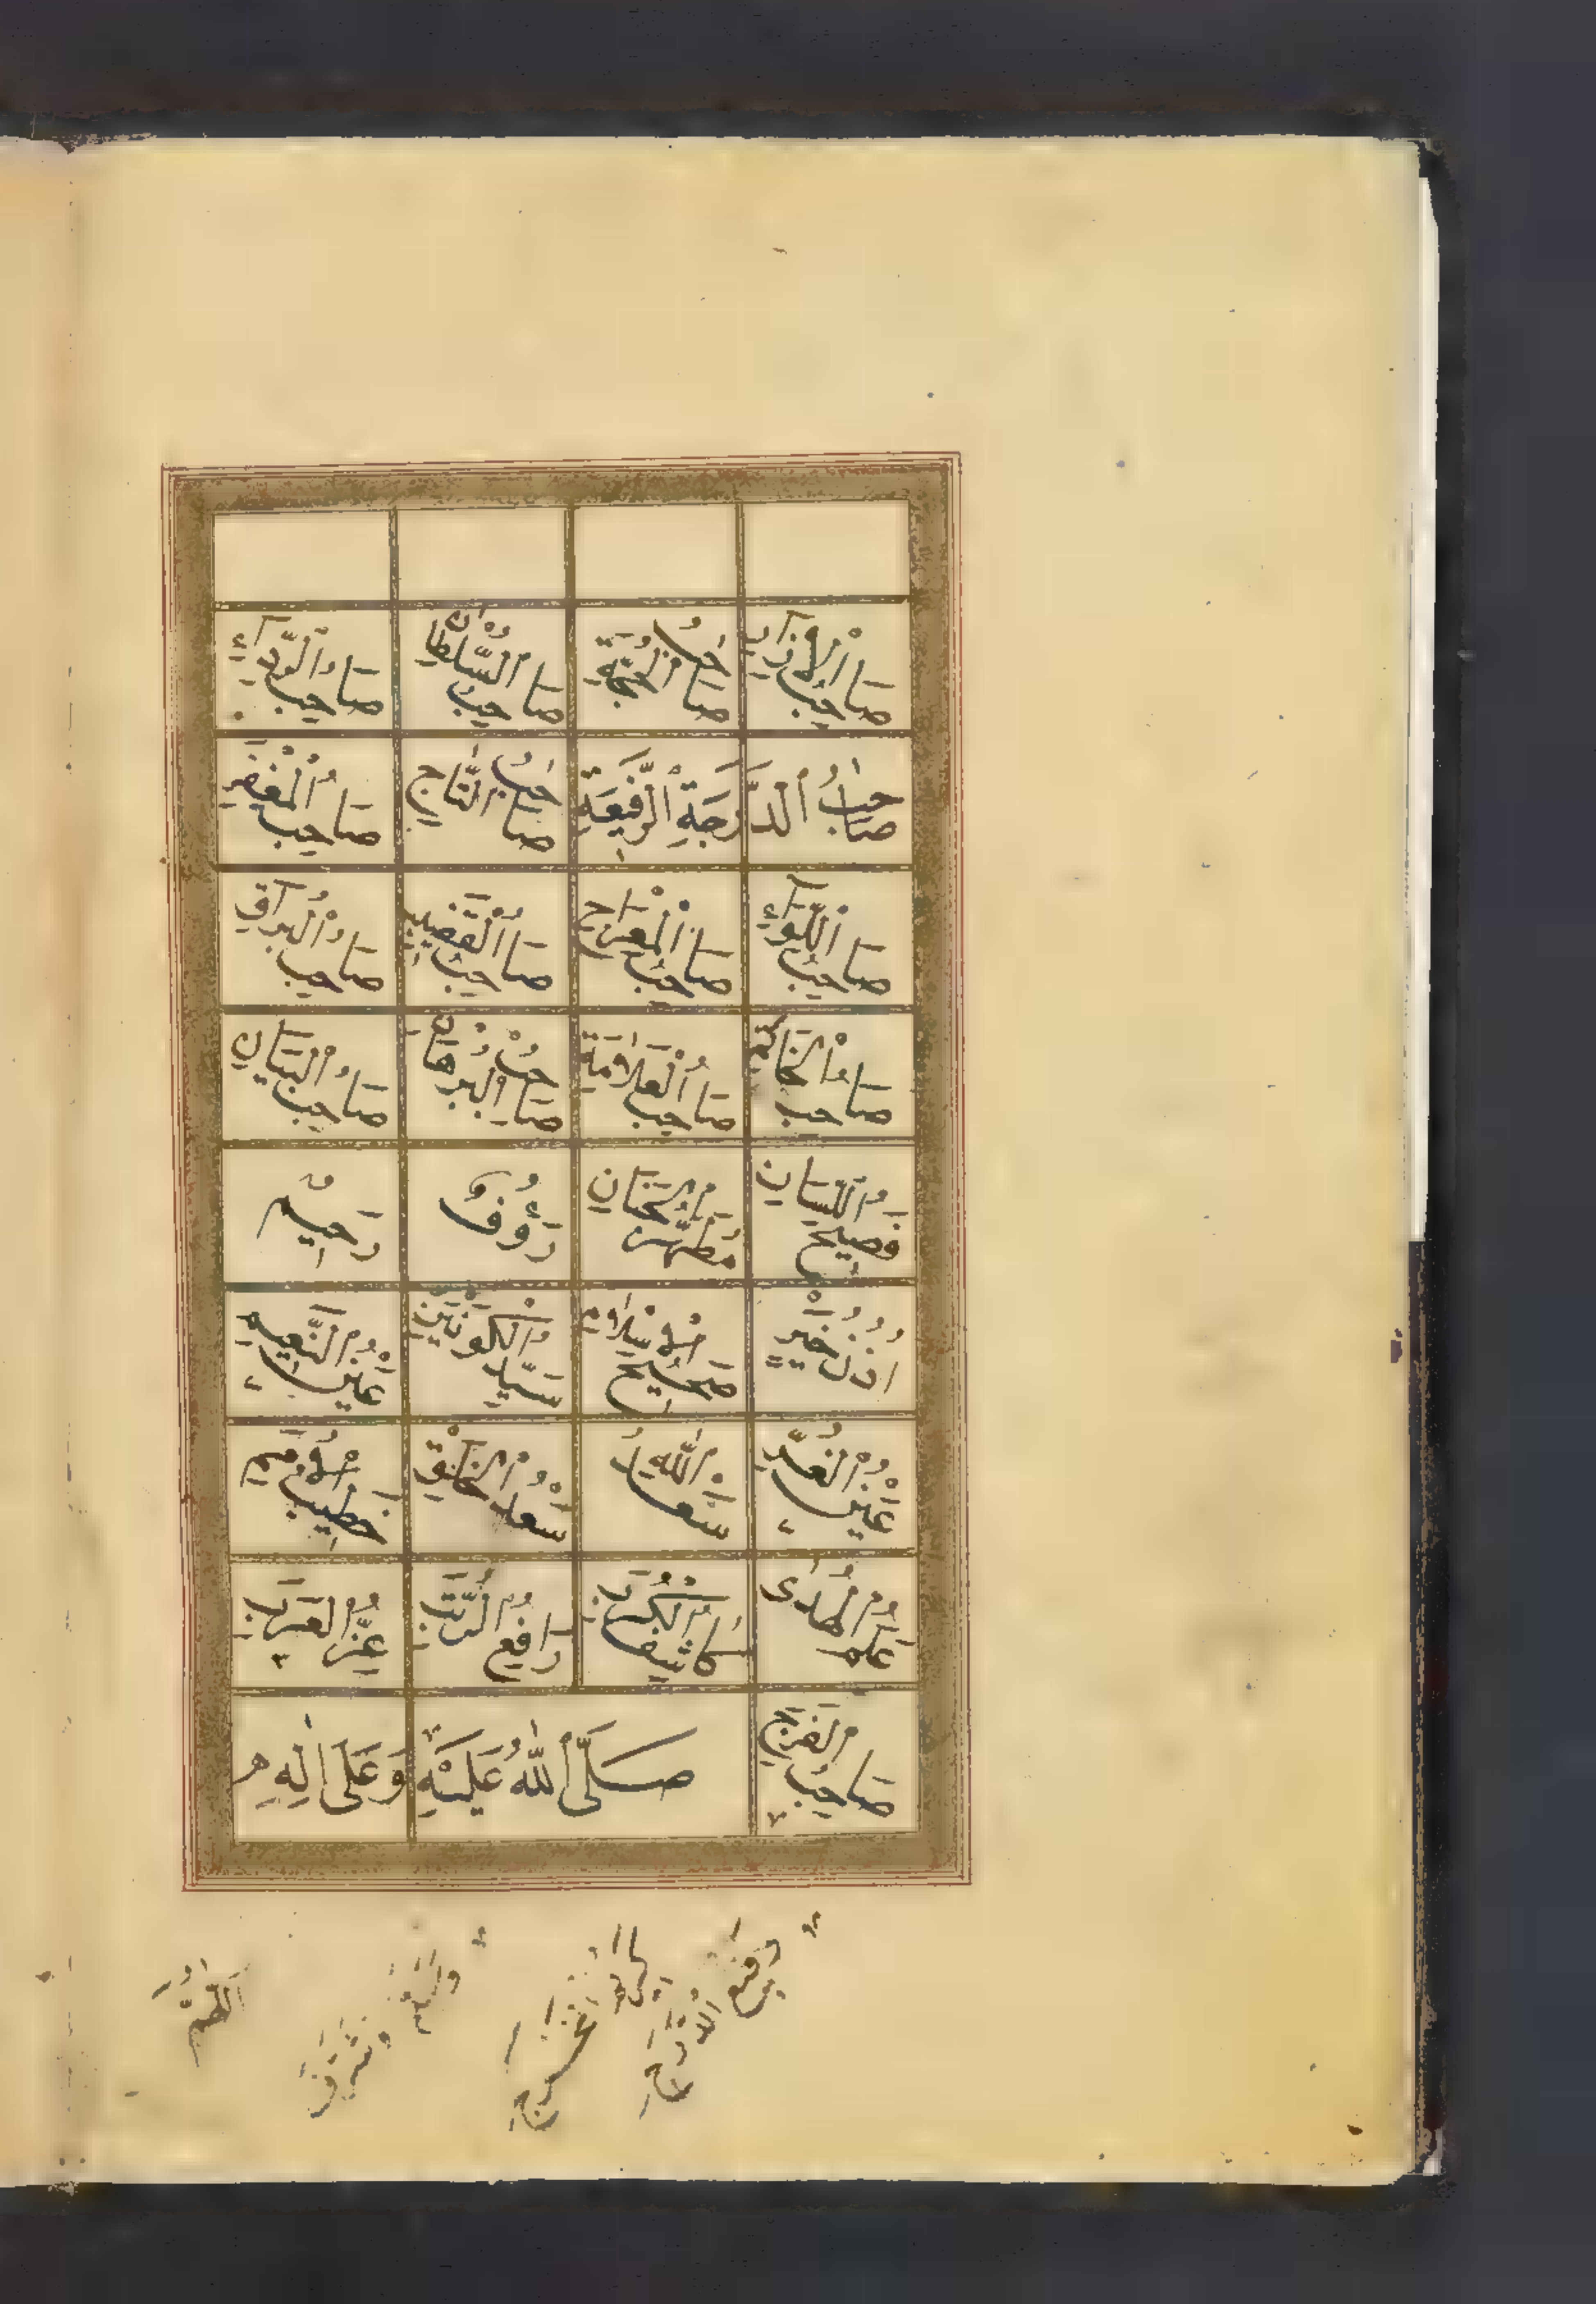 صَاحِبُ الْاِزَارِ صَاحِبُ الْحُجَّةِ صَاحِبُ السُّلْطَانِ صَاحِبُ الرِّدَآءِ
صَاحِبُ الدَّرَجَةِ الرَّفِيعَةِ صَاحِبُ التَّاجِ صَاحِبُ الْمِغْفَرِ
صَاحِبُ اللِّوَآءِ صَاحِبُ الْمِعْرَاجِ صَاحِبُ الْقَضِيبِ صَاحِبُ الْبُرَاقِ
صَاحِبُ الْخَاتَمِ صَاحِبُ الْعَلَامَةِ صَاحِبُ الْبُرْهَانِ صَاحِبُ الْبَيَانِ
فَصِيحُ اللِّسَانِ مُطَهَّرُ الْجَنَانِ رَؤُفٌ رَحِيمٌ
اُذُنُ خَيْرٍ صَحِيحُ الْاِسْلَامِ سَيِّدُ الْكَوْنَيْنِ عَيْنُ النَّعِيمِ
عَيْنُ الْغُرِّ سَعْدُ اللهِ سَعْدُ الْخَلْقِ خَطِيبُ الْاُمَمِ
عَلَمُ الْهُدَى كَاشِفُ الْكُرَبِ رَافِعُ الرُّتَبِ عِزُّ الْعَرَبِ
صَاحِبُ الْفَرَجِ صَلَّى اللهُ عَلَيْهِ وَعَلَى اٰلِهِ